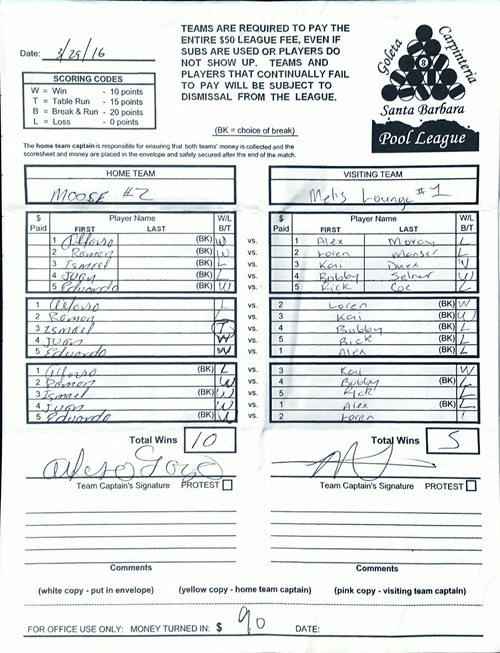 TEAMS ARE REQUIRED TO PAY THE
ENTIRE $50 LEAGUE FEE, EVEN IF
SUBS ARE USED OR PLAYERS DO
NOT SHOW UP. TEAMS AND
PLAYERS THAT CONTINUALLY FAIL
TO PAY WILL BE SUBJECT TO
DISMISSAL FROM THE LEAGUE.
Date: 3/29/16
Goleta Carpinteria
8
Santa Barbara
Pool League
SCORING CODES
W = Win - 10 points
T = Table Run - 15 points
B = Break & Run - 20 points
L = Loss - 0 points
(BK = choice of break)
The home team captain is responsible for ensuring that both teams' money is collected and the
scoresheet and money are placed in the envelope and safely secured after the end of the match.
HOME TEAM VISITING TEAM
MOOSE #2 Melis Lounge #1
$ Paid Player Name FIRST LAST W/L B/T $ Paid Player Name FIRST LAST W/L B/T
1 Alfonso (BK) W vs. 1 Alex L
2 Ramon (BK) W vs. 2 Loren Manser L
3 Ismael (BK) L vs. 3 Kai W
4 Juan (BK) L vs. 4 Bobby Selner W
5 Eduardo (BK) W vs. 5 Rick Coe L
1 Alfonso L vs. 2 Loren (BK) W
2 Ramon L vs. 3 Kai (BK) W
3 Ismael T vs. 4 Bobby (BK) L
4 Juan W vs. 5 Rick (BK) L
5 Eduardo W vs. 1 Alex (BK) L
1 Alfonso (BK) L vs. 3 Kai W
2 Ramon W vs. 4 Bobby (BK) L
3 Ismael (BK) W vs. 5 Rick L
4 Juan W vs. 1 Alex (BK) L
5 Eduardo (BK) W vs. 2 Loren L
Total Wins 10 Total Wins 5
Team Captain's Signature PROTEST Team Captain's Signature PROTEST
Comments Comments
(white copy - put in envelope) (yellow copy - home team captain) (pink copy - visiting team captain)
FOR OFFICE USE ONLY: MONEY TURNED IN: $ 90 DATE: